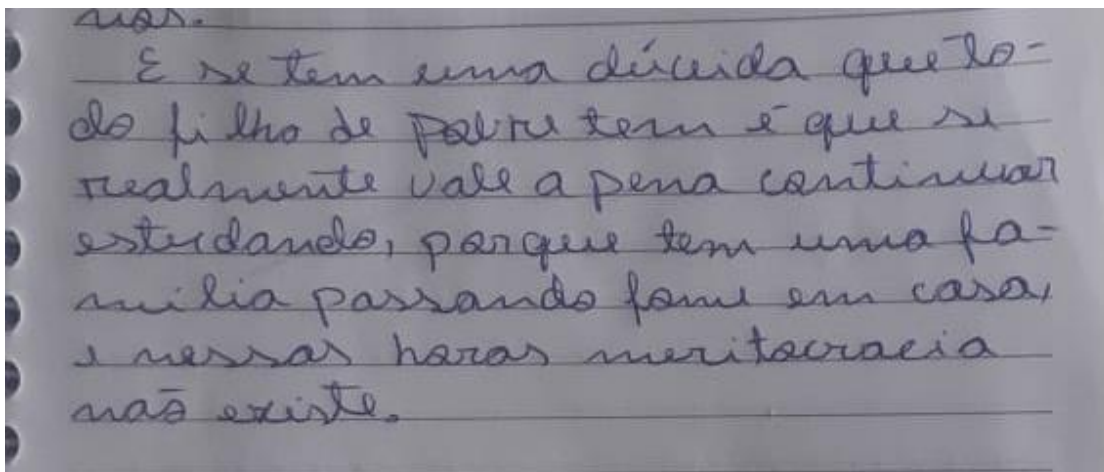 nos.
E se tem uma dúvida que to-
do filho de pobre tem é que se
realmente vale a pena continuar
estudando, porque tem uma fa-
mília passando fome em casa,
e nessas horas meritocracia
não existe.